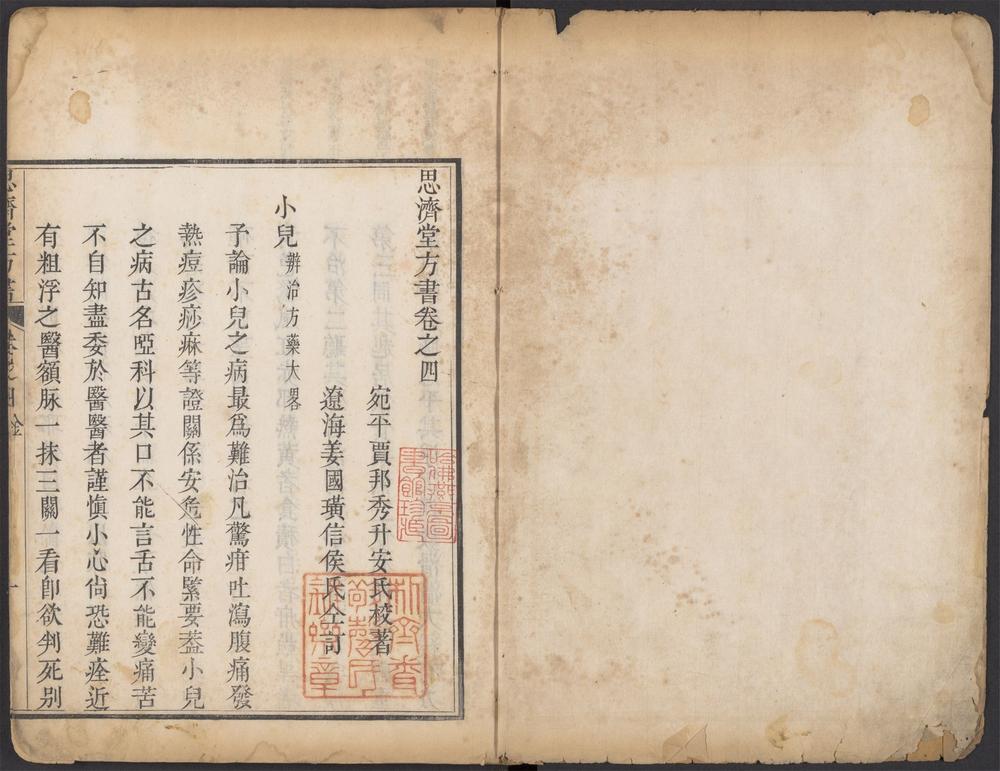 思濟堂方書卷之四
宛平賈邦秀升安氏校著
遼海姜國璜信侯氏仝訂
小兒辨治方藥大畧
予論小兒之病最爲難治凡驚疳吐瀉腹痛發
熱痘疹痧痳等證關係安危性命緊要葢小兒
之病古名啞科以其口不能言舌不能變痛苦
不自知盡委於醫醫者謹愼小心尙恐難痊近
有粗浮之醫額脉一抹三關一看卽欲判死别
思濟堂方書 卷之四 一